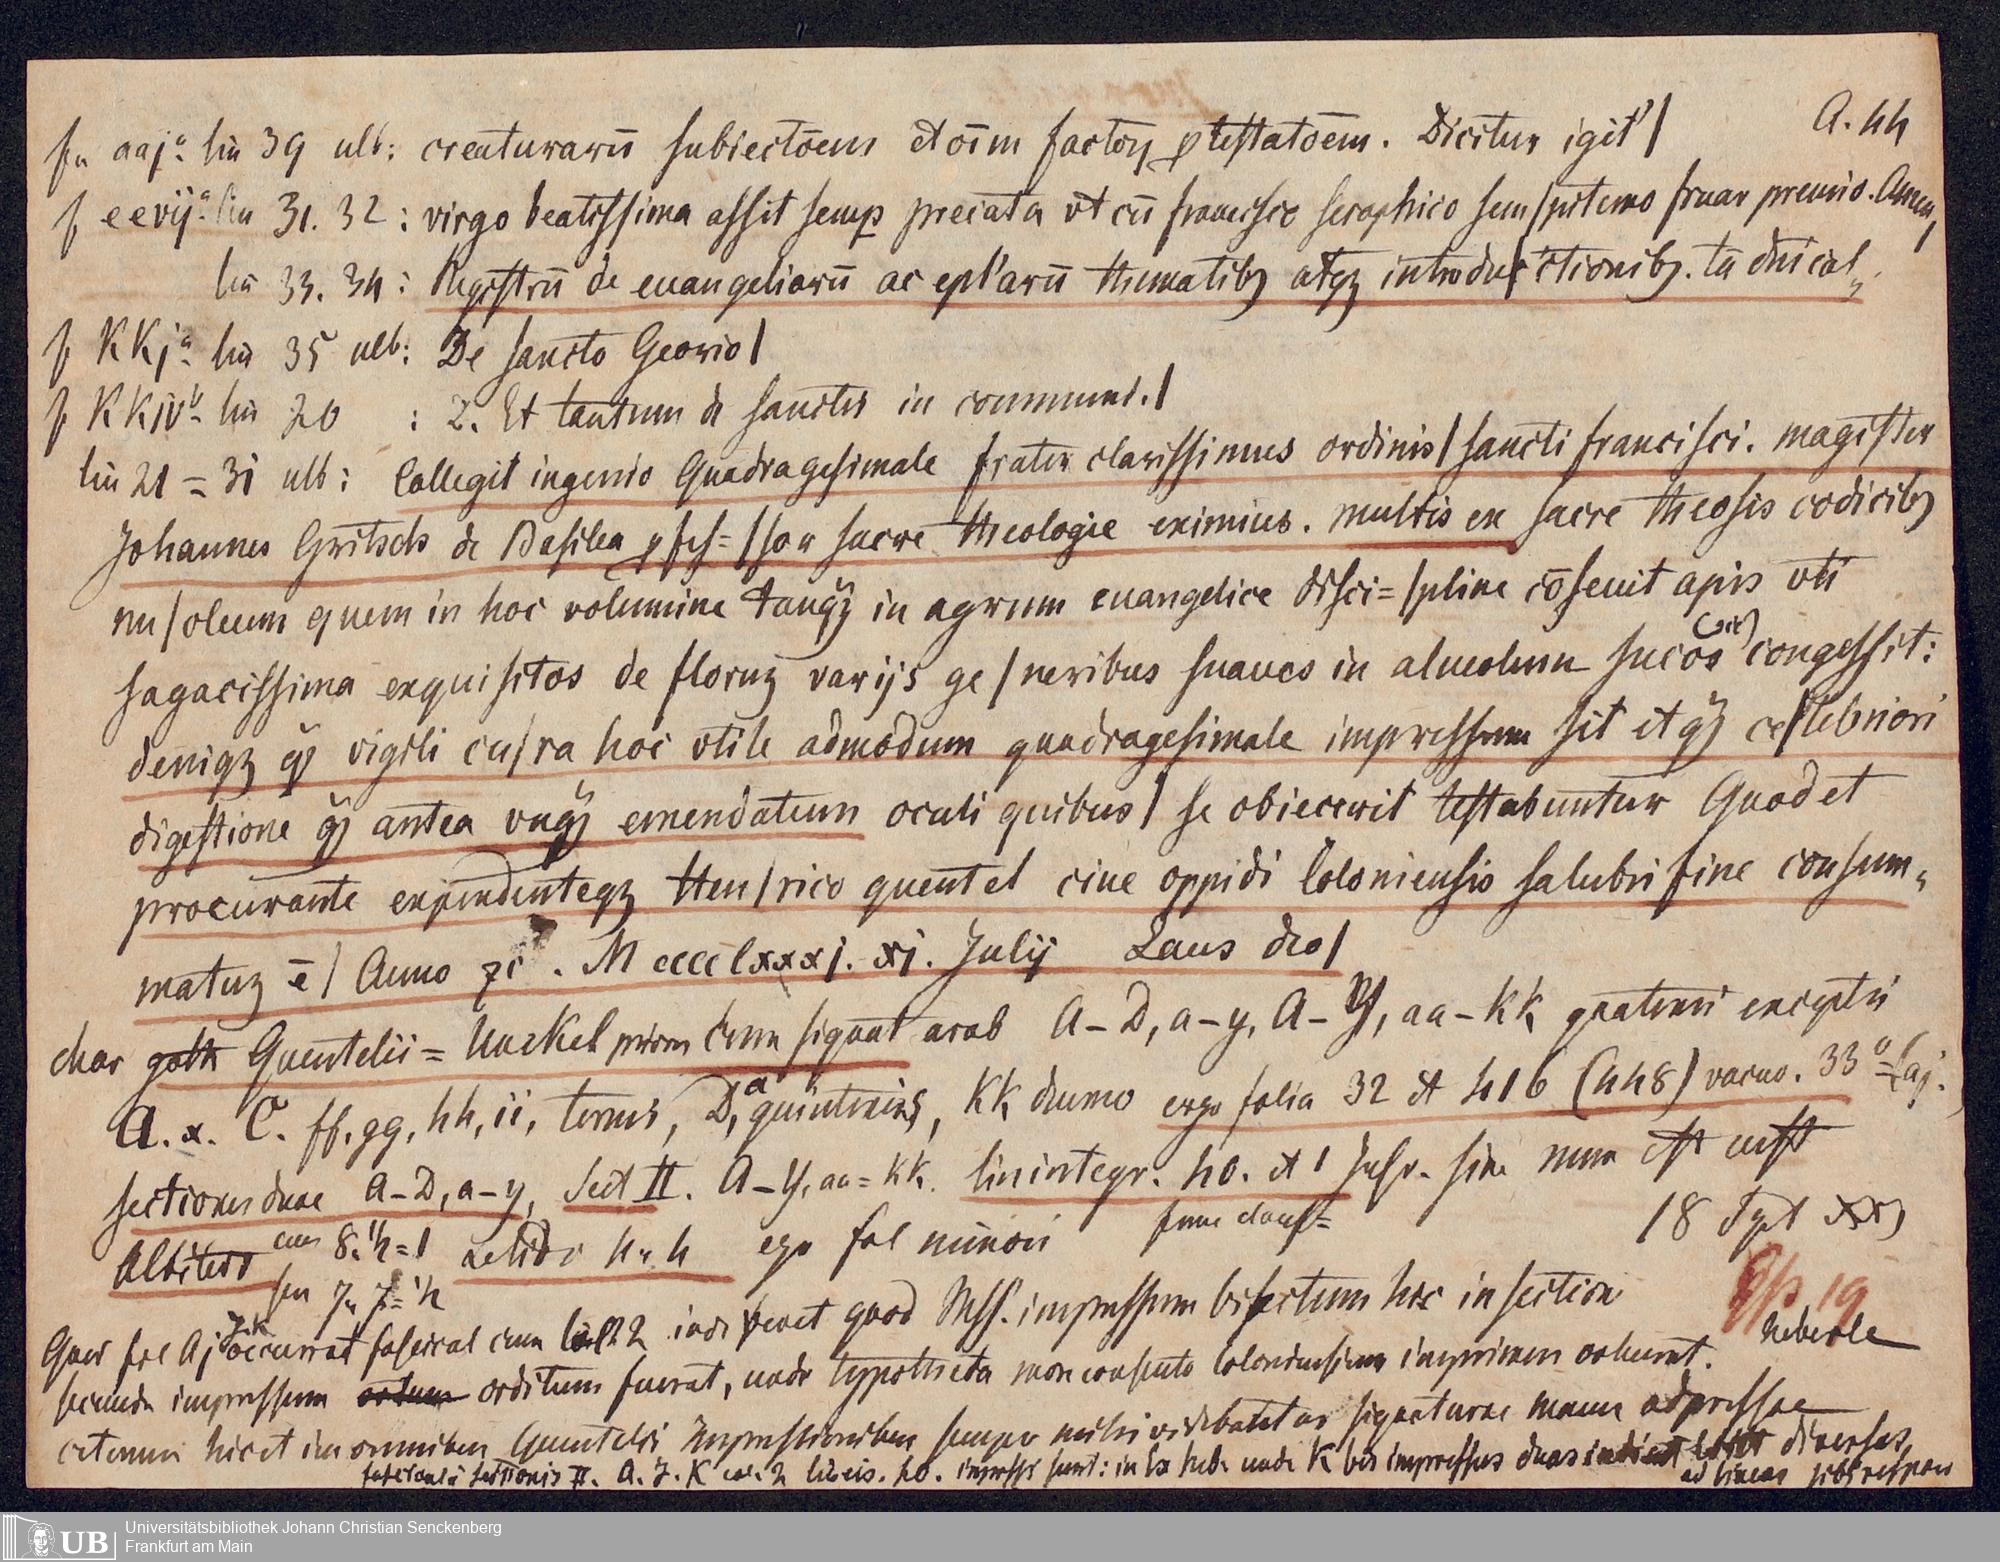 A. hh
fu aajª lin 39 ulb: creaturarū subiectōem et oīm factoꝝ ꝓtestatōem. Dicitur igit'|
f eevijª lin 31. 32: virgo beatissima assit semꝑ precata vt cū francisco seraphico sem|piterno fruar premio. Amen,
lin 33. 34: Registrū de euangeliorū ac epl'arū thematibꝫ atqꝫ introdu|ctionibꝫ. tā dn̄ical
f KKjª lin 35 ulb: De sancto Georio|
f KKivᵇ lin 20 : 2. Et tantum de sanctis in communi.|
lin 21 = 31 ulb: Collegit ingenio Quadragesimale frater clarissimus ordinis|sancti francisci. magister
Johannes Gritsch de Basilea ꝓfes=|sor sacre theologie eximius. multis ex sacre theosis codicibꝫ
nu|cleum quem in hoc volumine tanqꝫ in agrum euangelice disci=|pline cōseuit apis vti
sagacissima exquisitos de floruꝫ varijs ge|neribus suaues in alueolum sucos (sic) congessit:
deniqꝫ qꝫ vigili cu|ra hoc vtile admodum quadragesimale impressum sit et qꝫ ce|lebriori
digestione qꝫ antea vnqꝫ emendatum oculi quibus| se obiecerit testabuntur Quod et
procurante expendenteqꝫ Hen|rico quentel ciue oppidi Coloniensis salubri fine consum
matuꝫ ē| Anno . M cccc lxxxj. xj. Julij Laus deo|
char goth Quentelii = Unckel cum signat arab A–D, a–y, A–Y, aa–KK quaterni exceptis
A. x. C. ff. gg, hh, ii, ternis, D, a quinternis, KK duerno ergo folia 32 et 416 (448) vacuo. 33ª = (aj.
sectiones duae A–D, a–y, Sect II. A–Y, aa=KK. lin integr. 40. et 1 sine num est
Altitudo cum 8. ½=1 4. 4 ergo fol minori 18 Sept
seu 7. 7=½
Quod fol Aj occurrat cum 2 quod impressum hoc in sectione
19
Heberle
secunda impressum orditum fuerat, unde typotheta more consueto Coloniensium imprimere
ceterum hic et in omnibus Quentelii impressionibus semper mihi videbantur signaturae manu adpressae
sectionis II. A. J. K lineis. 40. impressi sunt: in unde K bis impressus duas diversas,
ad lineas
Universitätsbibliothek Johann Christian Senckenberg
Frankfurt am Main
UB